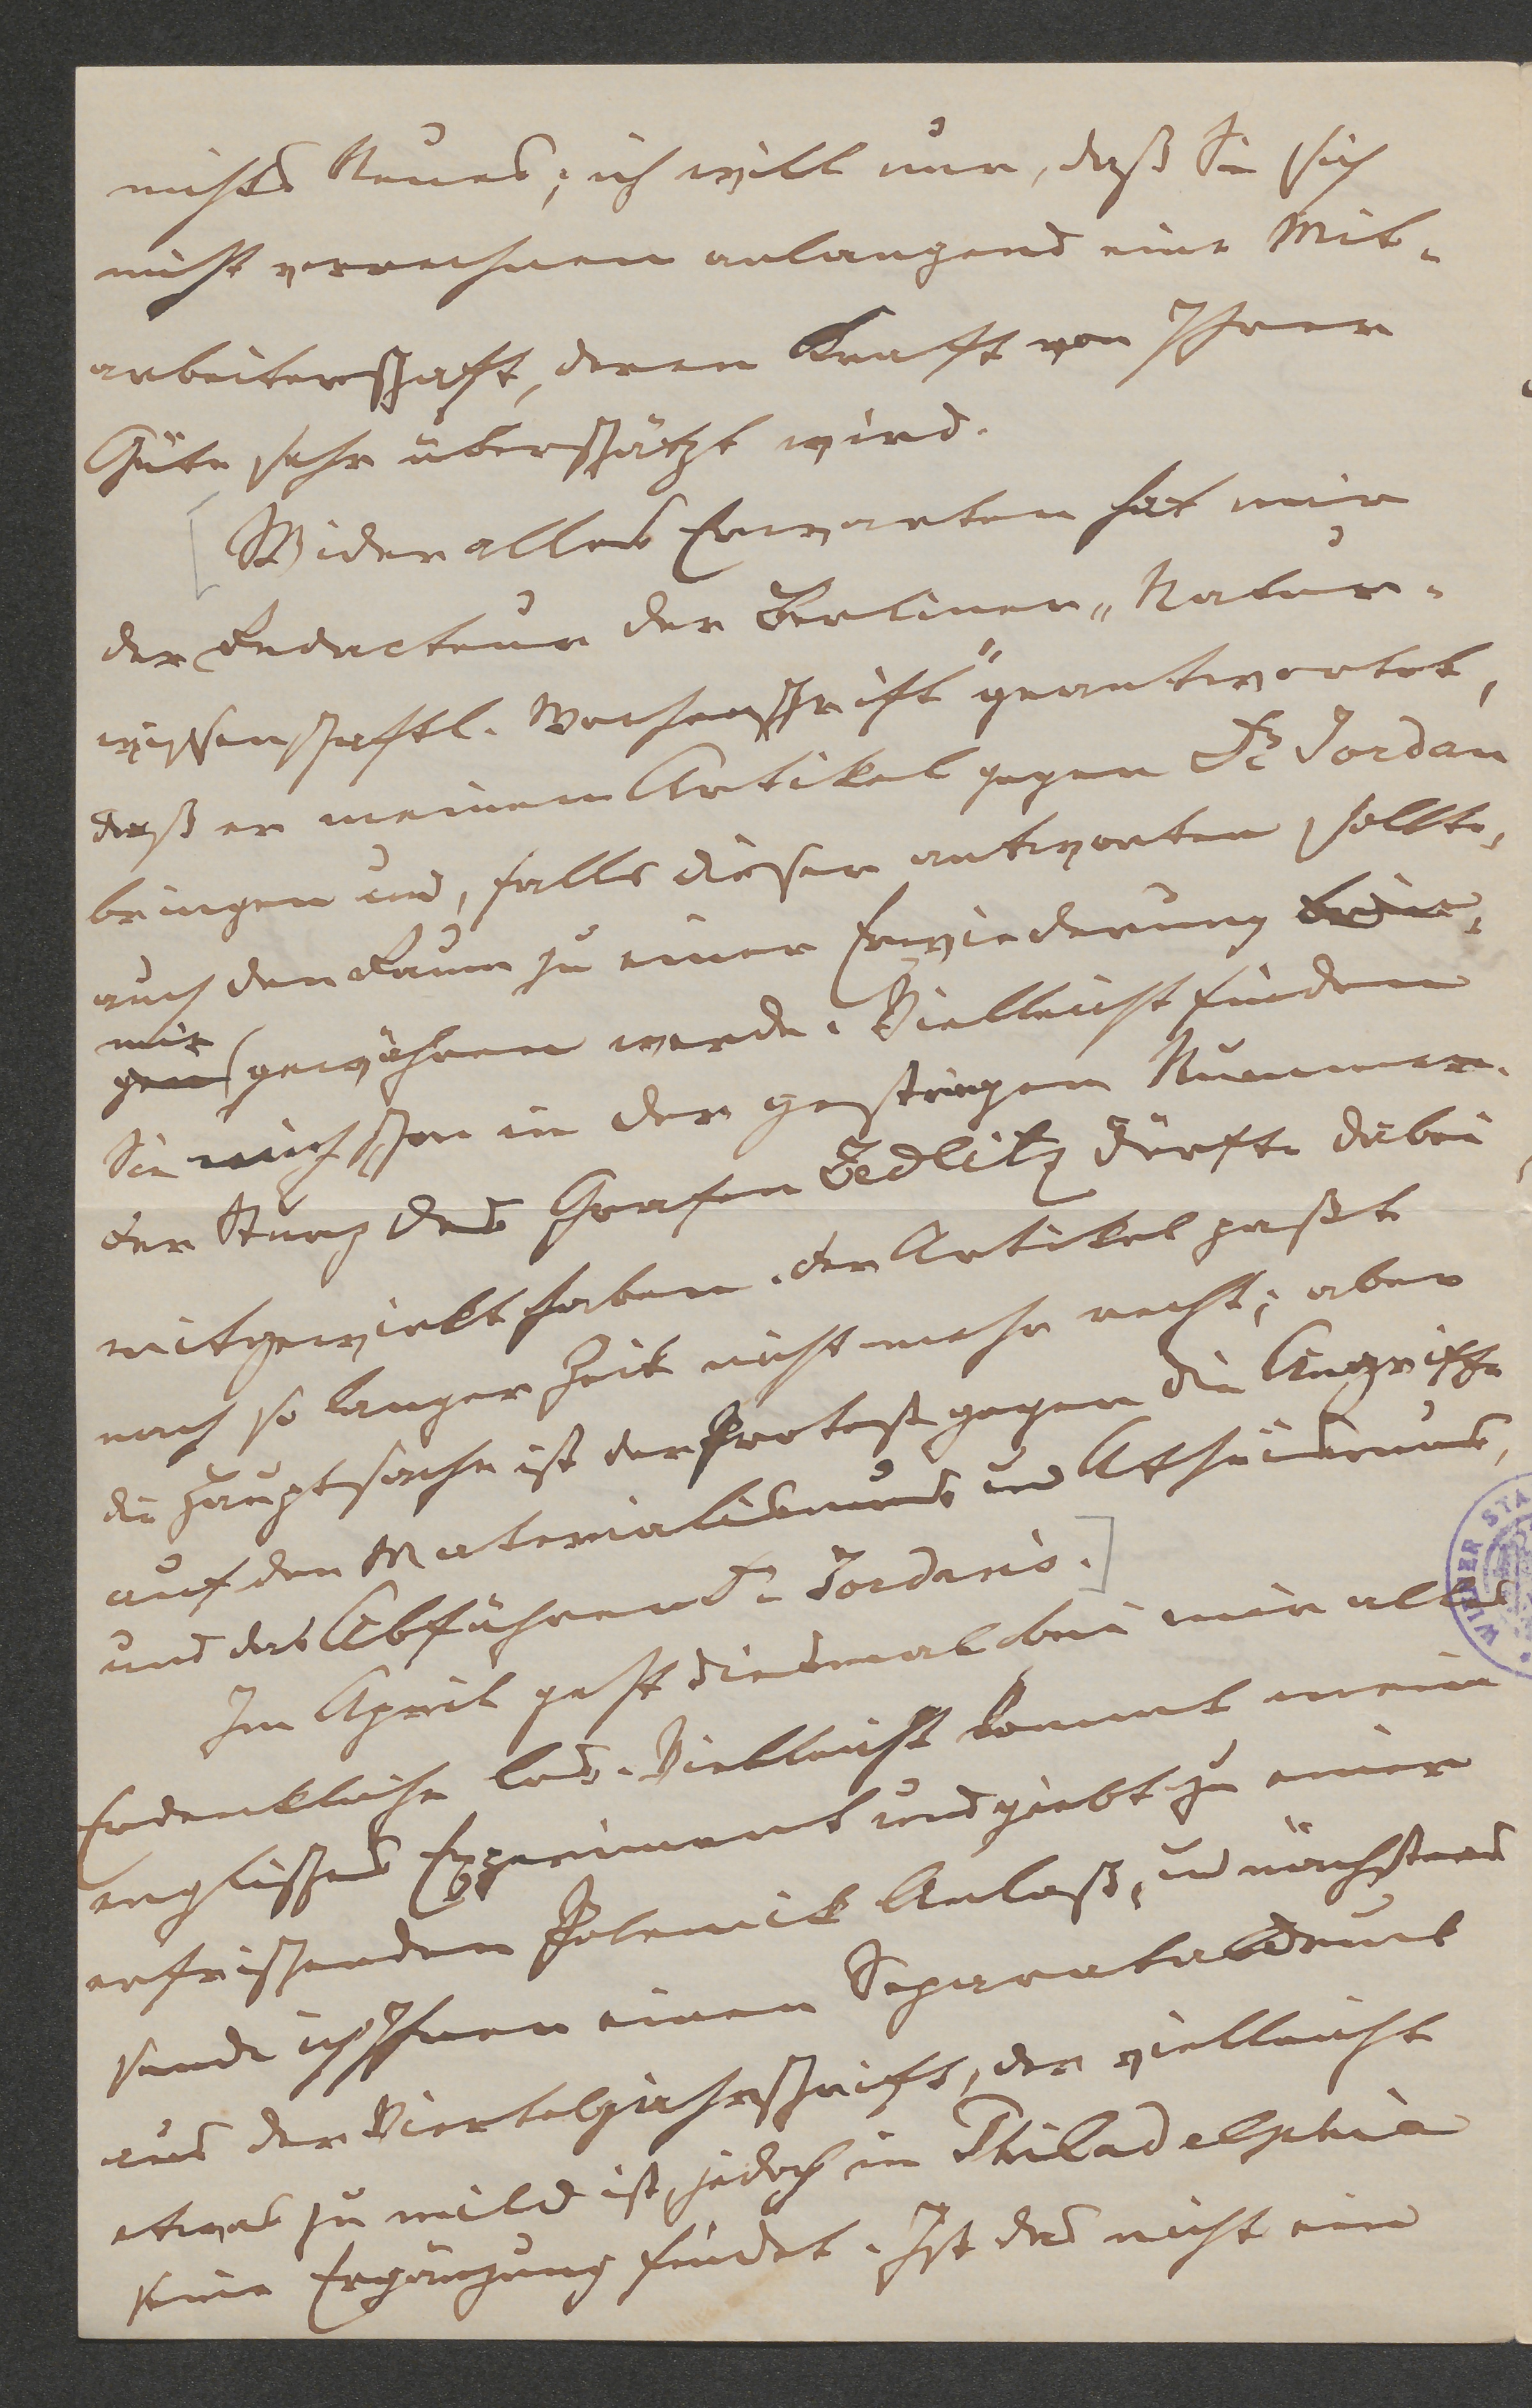 nichts Neues; ich will nur, daß Sie sich
nicht verrechnen anlangend eine Mit-
arbeiterschaft, deren Kraft von Ihrer
Güte sehr überschätzt wird.
[Wider alles Erwarten hat mir
der Redacteur der Berliner „Natur-
wissenschaftl. Wochenschrift" geantwortet,
daß er meinen Artikel gegen Dr Jordan
bringen und, falls dieser antworten sollte,
auch den Raum zu einer Erwiederung
mir
gewähren werde. Vielleicht finden
Sie mich schon in der gestrigen Nummer.
Der Sturz des Grafen Zedlitz dürfte dabei
mitgewirkt haben. Der Artikel paßt
nach so langer Zeit nicht mehr recht; aber
die Hauptsache ist der Protest gegen die Angriffe
auf den Materialismus und Atheismus,
und das Abführen Dr Jordan's.]
Im April geht diesmal bei mir alles
Erdenkliche los. Vielleicht kommt mein
englisches Experiment und giebt zu einer
erfrischenden Polemik Anlaß, und nächstens
sende ich Ihnen einen Separatabdruck
aus der Vierteljahrsschrift, der vielleicht
etwas zu mild ist, jedoch in Philadelphia
seine Ergänzung findet. Ist das nicht ein
WIENER STA